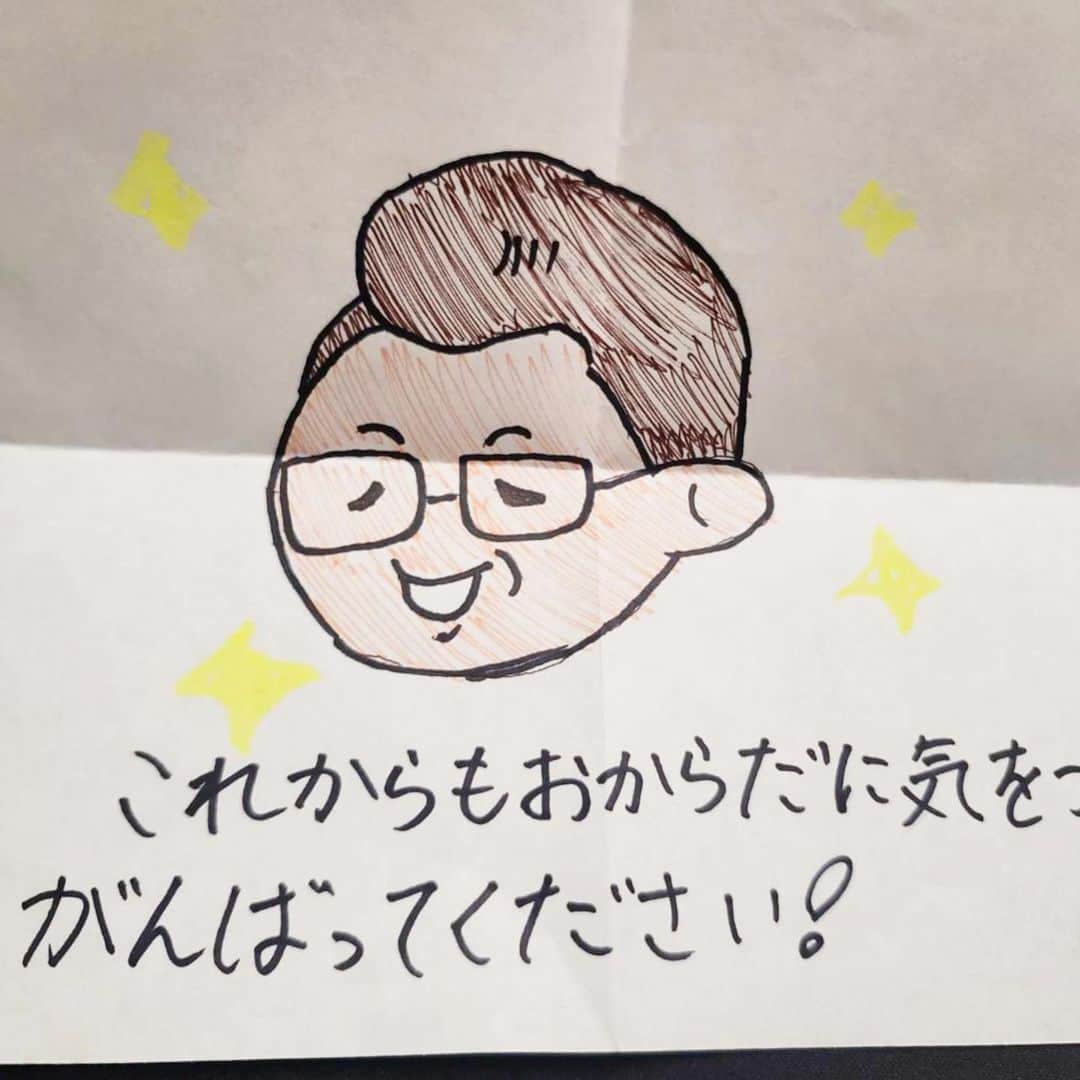 これからもおからだに気をつ
がんばってください!